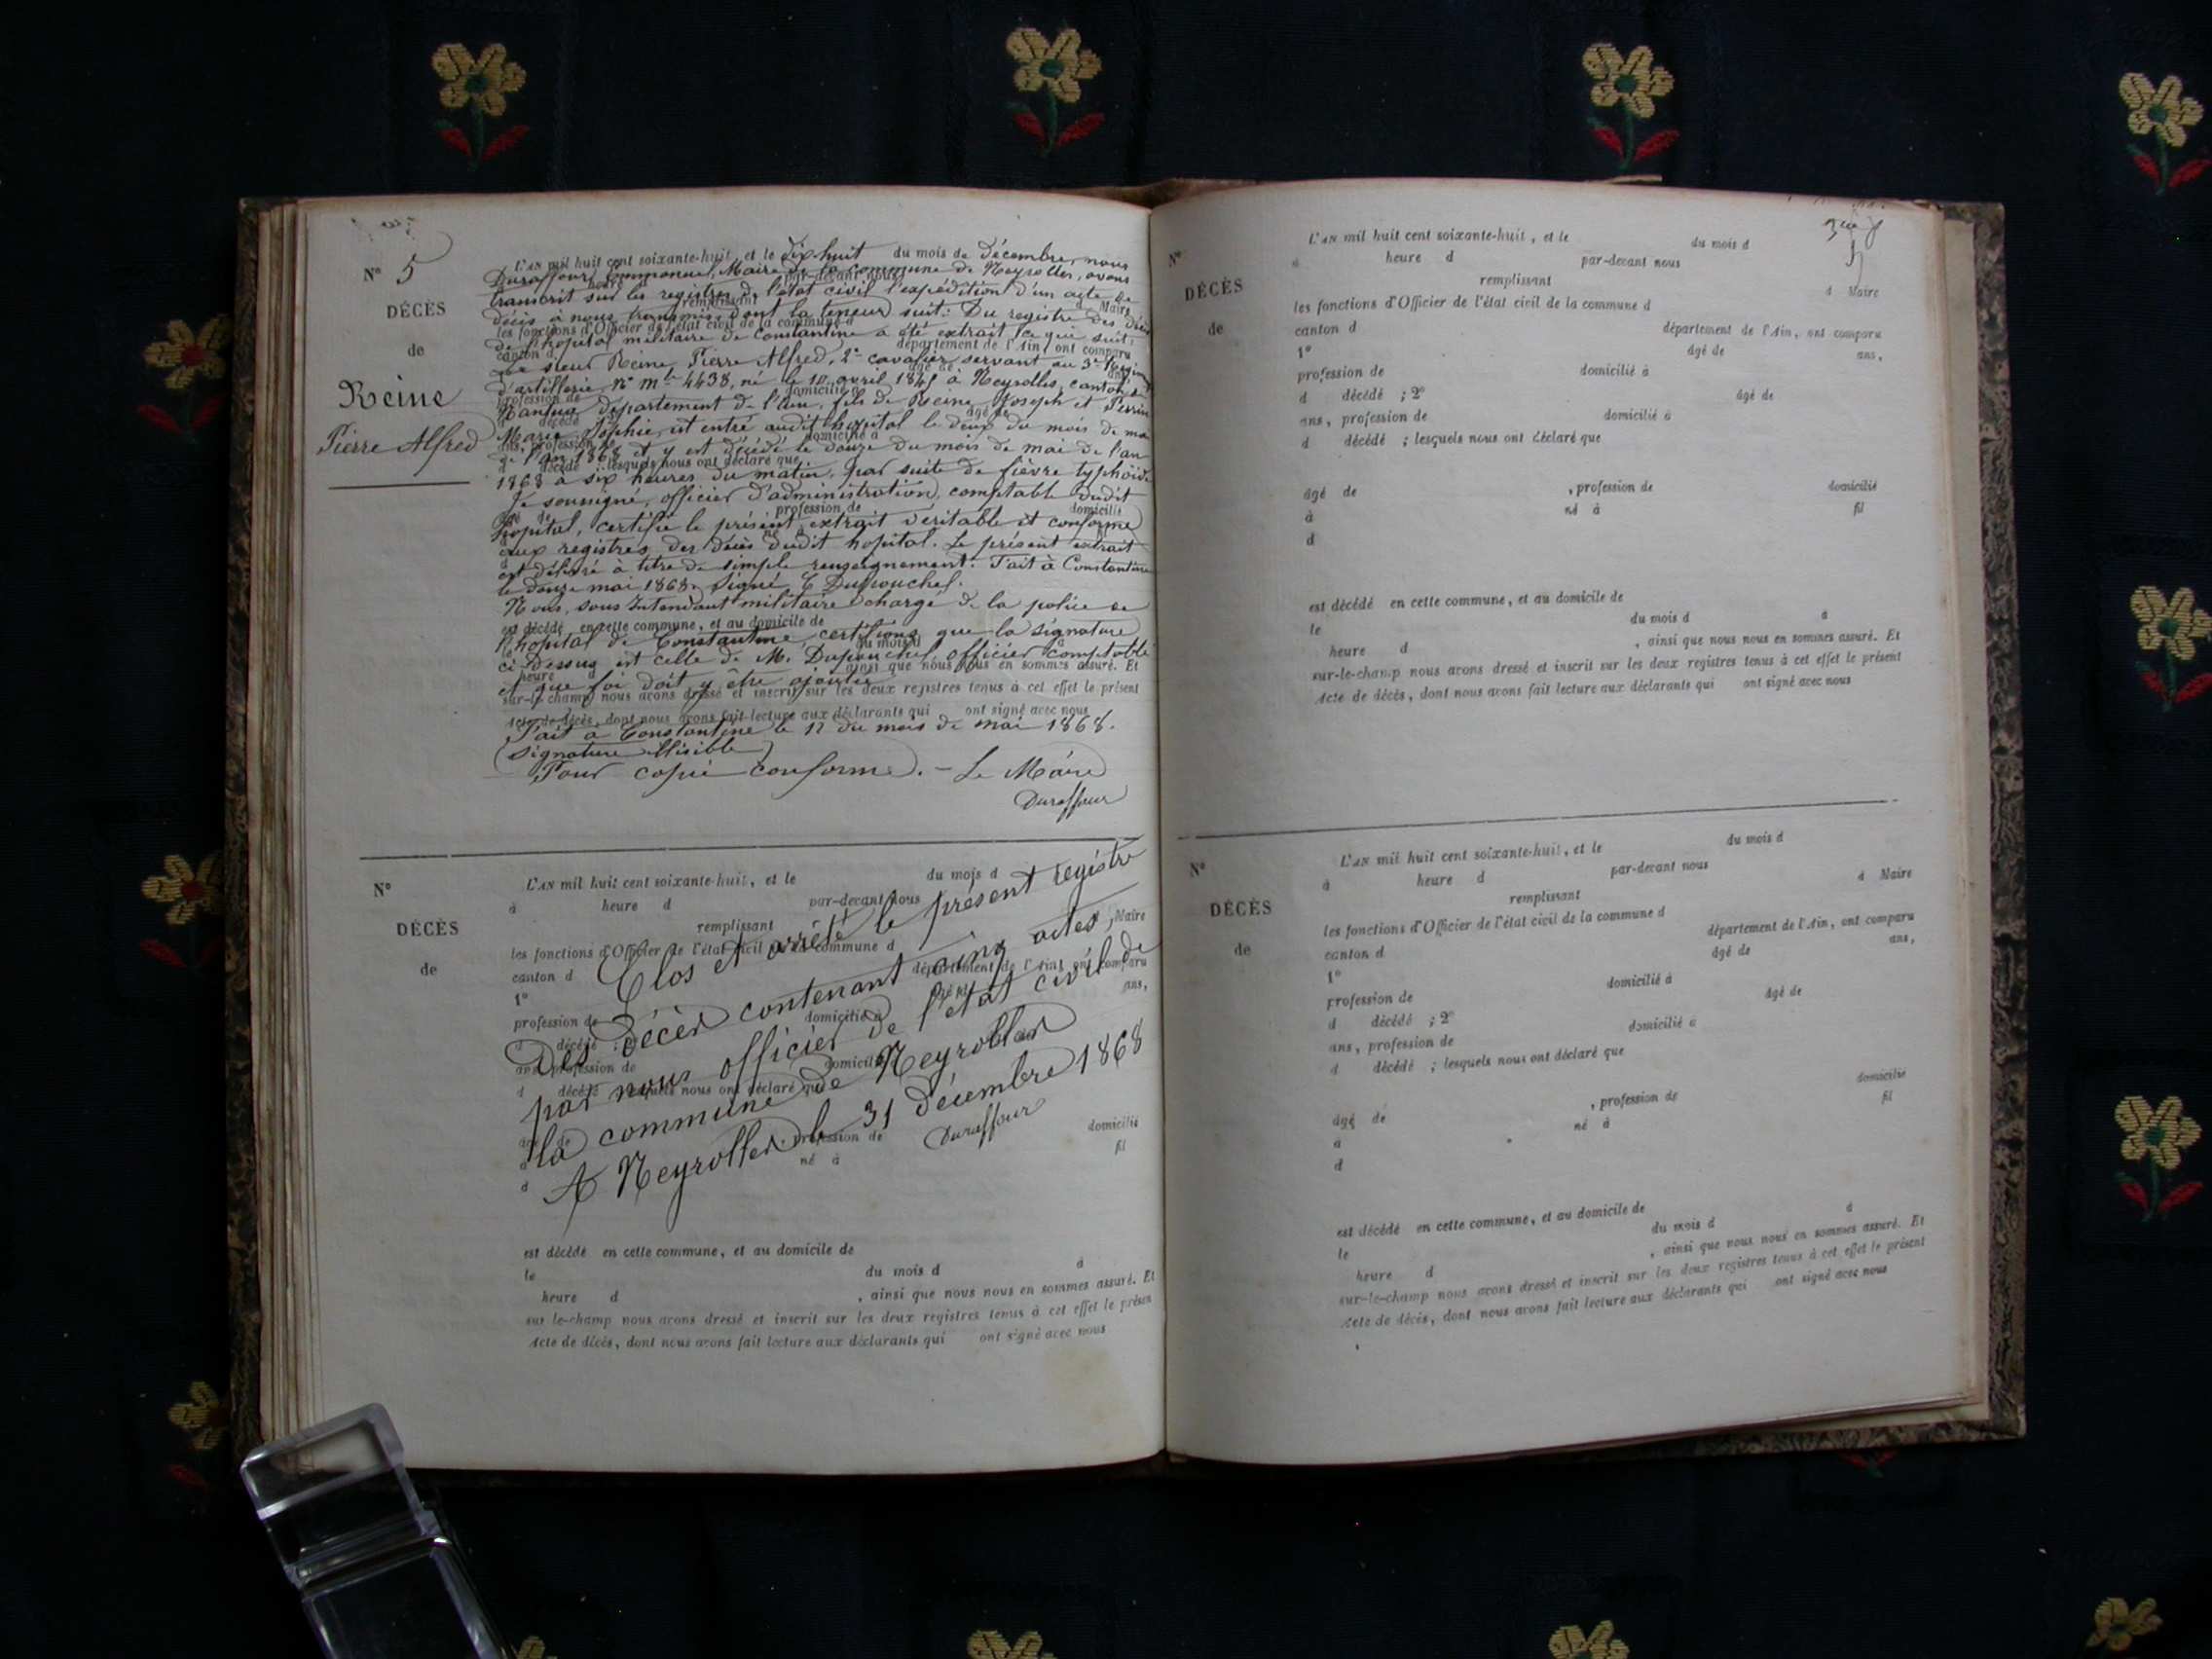 N° 5
DÉCÈS
de
Reine
Pierre Alfred
L'AN mil huit cent soixante-huit, et le dix huit du mois de Décembre, nous
Duraffour, Emmanuel, Maire de la commune de Neyrolles, avons
transcrit sur les registres de l'état civil l'expédition d'un acte de
décès à nous transmis dont la teneur suit : Du registre des décès
de l'hopital militaire de Constantine a été extrait ce qui suit :
Le sieur Reine, Pierre Alfred, 2e cavalier servant au 3e Régiment
d'artillerie, N° Mle 4438, né le avril à Neyrolles, canton de
Nantua département de l'Ain, fils de Reine Joseph et Perrin
Marie Sophie, est entré audit hopital le deux du mois de mai
de l'an 1868 et y est décédé le douze du mois de mai de l'an
1868 à six heures du matin, par suite de fièvre typhöide
Je soussigné, officier d'administration, comptable dudit
hopital, certifie le présent extrait véritable et conforme
aux registres des décès dudit hopital. Le présent extrait
est délivré à titre de simple renseignement. Fait à Constantine
le douze mai 1868. Signé,
Nous, sous Intendant militaire chargé de la police de
l'hopital de Constantine certifions que la signature
ci-dessus est celle de M. officier comptable
et que foi doit y être ajoutée
sur-le-champ nous avons dressé et inscrit sur les deux registres tenus à cet effet le présent
Acte de décès, dont nous avons fait lecture aux déclarants qui ont signé avec nous
Fait à Constantine le 12 du mois de mai 1868.
(Signature illisible)
Pour copie conforme. - Le Maire
Duraffour
N°
DÉCÈS
de
L'AN mil huit cent soixante-huit, et le du mois d
à heure d par-devant nous
remplissant d Maire
les fonctions d'Officier de l'état civil de la commune d
canton d département de l'Ain, ont comparu
1° âgé de ans,
profession de domicilié à
Clos et arrêté le présent registre
Des Décès contenant cinq actes,
par nous officier de l'état civil de
la commune de Neyrolles
A Neyrolles le 31 décembre 1868
Duraffour
profession de domicilié
né à fil
d
est décédé en cette commune, et au domicile de
le du mois d à
heure d , ainsi que nous nous en sommes assuré. Et
sur-le-champ nous avons dressé et inscrit sur les deux registres tenus à cet effet le présen
Acte de décès, dont nous avons fait lecture aux déclarants qui ont signé avec nous
N°
DÉCÈS
de
L'AN mil huit cent soixante-huit, et le du mois d
à heure d par-devant nous
remplissant d Maire
les fonctions d'Officier de l'état civil de la commune d
canton d département de l'Ain, ont comparu
1° âgé de ans,
profession de domicilié à
d décédé ; 2° âgé de
ans, profession de domicilié à
d décédé ; lesquels nous ont déclaré que
âgé de , profession de domicilié
à né à fil
d
est décédé en cette commune, et au domicile de
le du mois d à
heure d , ainsi que nous nous en sommes assuré. Et
sur-le-champ nous avons dressé et inscrit sur les deux registres tenus à cet effet le présent
Acte de décès, dont nous avons fait lecture aux déclarants qui ont signé avec nous
N°
DÉCÈS
de
L'AN mil huit cent soixante-huit, et le du mois d
à heure d par-devant nous
remplissant d Maire
les fonctions d'Officier de l'état civil de la commune d
canton d département de l'Ain, ont comparu
1° âgé de ans,
profession de domicilié à
d décédé ; 2° âgé de
ans, profession de domicilié à
d décédé ; lesquels nous ont déclaré que
âgé de , profession de domicilié
à né à fil
d
est décédé en cette commune, et au domicile de
le du mois d à
heure d , ainsi que nous nous en sommes assuré. Et
sur-le-champ nous avons dressé et inscrit sur les deux registres tenus à cet effet le présent
Acte de décès, dont nous avons fait lecture aux déclarants qui ont signé avec nous